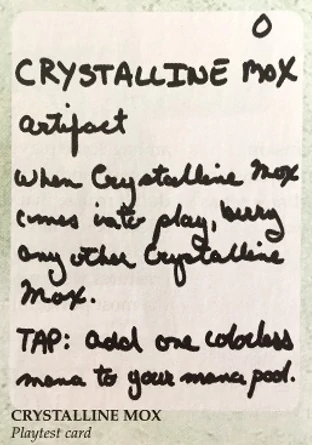 0
CRYSTALLINE MOX
artifact
when Crystalline Mox
comes into play, bury
any other Crystalline
Mox.
TAP: add one colorless
mana to your mana pool.
CRYSTALLINE MOX
Playtest card